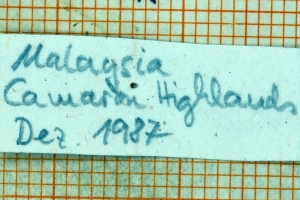 Malaysia
Camaron Highlands
Dez. 1987